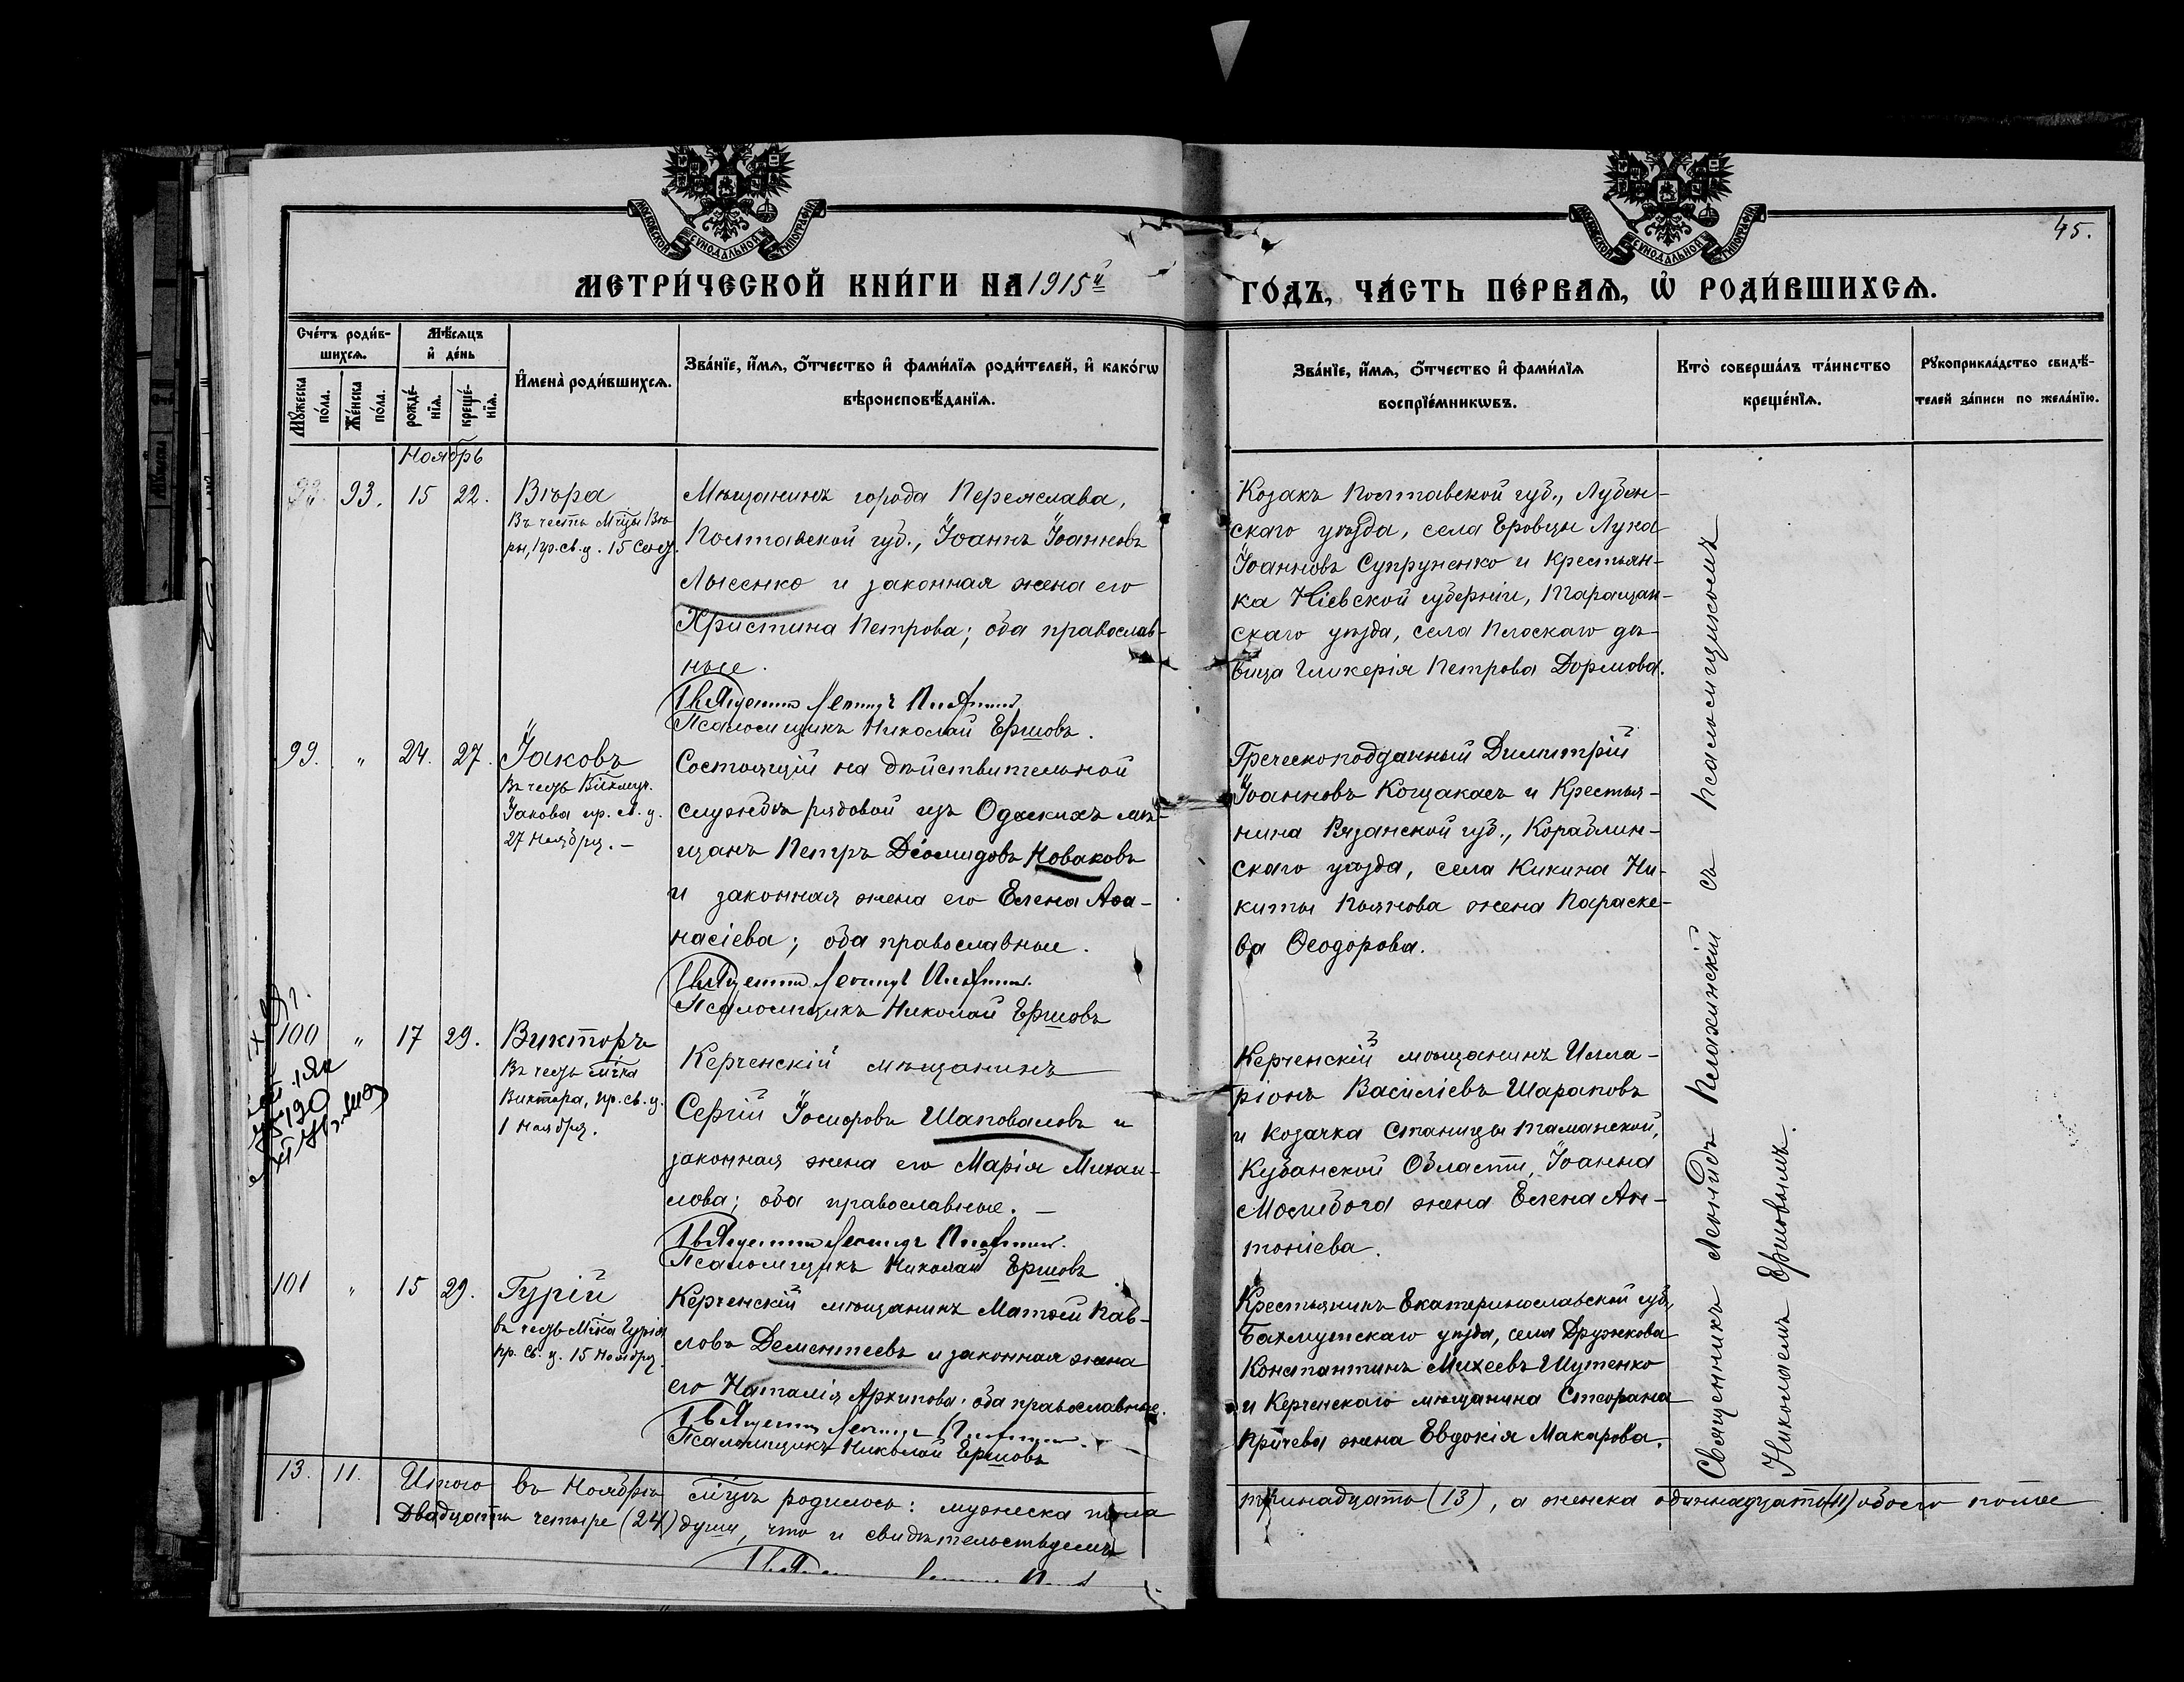 МОСКОВСКОЙ СѴНОДАЛЬНОЙ ТИПОГРАФІИ
МОСКОВСКОЙ СѴНОДАЛЬНОЙ ТИПОГРАФІИ
45.
МЕТРИ́ЧЕСКОЙ КНИ́ГИ НА 1915й
ГО́ДЪ, ЧА́СТЬ ПЕ́РВАѦ, Ѡ҆ РОДИ́ВШИХСѦ.
Сче́тъ роди́в-
шихсѧ.
Мꙋ́жеска по́ла.
Же́нска по́ла.
Мѣ́сѧцъ
и҆ де́нь
рожде́-
нїѧ.
креще́-
нїѧ.
И҆мена̀ роди́вшихсѧ.
Зва́нїе, и҆́мѧ, ѻ҆́тчество и҆ фами́лїѧ роди́телей, и҆ како́гѡ
вѣроисповѣ́данїѧ.
Зва́нїе, и҆́мѧ, ѻ҆́тчество и҆ фами́лїѧ
воспрїе́мникѡвъ.
Кто̀ соверша́лъ та́инство
креще́нїѧ.
Рꙋкоприкла́дство свидѣ́-
телей за́писи по жела́нїю.
Ноябрь
93. 15 22. Вѣра
Въ честь Мцы Вѣ-
ры, пр. св. ц. 15 Сент.
Мѣщанинъ города Переяслава,
Полтавской губ., Іоаннъ Іоанновъ
Лысенко и законная жена его
Христина Петрова; оба православ-
ные.
Священникъ Леонидъ
Псаломщикъ Николай Ершовъ.
Козакъ Полтавской губ., Лубен-
скаго уѣзда, села Еровцы Лука
Іоанновъ Супруненко и Крестьян-
ка Кіевской губерніи, Таращан-
скаго уѣзда, села Плоскаго дѣ-
вица Гликерія Петрова Дормова.
99. " 24. 27. Іаковъ
Въ честь Вкмуч.
Іакова пр. св. ц.
27 Ноября. —
Состоящій на дѣйствительной
службѣ рядовой изъ Одескихъ мѣ-
щанъ Петръ Діомидовъ Новаковъ
и законная жена его Елена Аѳа-
насіева; оба православные.
Священникъ Леонидъ
Псаломщикъ Николай Ершовъ
Греческоподданный Димитрій
Іоанновъ Коцакасъ и Крестья-
нина Рязанской губ., Кораблин-
скаго уѣзда, села Кикина Ни-
киты Пьянова жена Параске-
ва Ѳеодорова.
100 " 17 29. Викторъ
Въ честь мчка
Виктора, пр. св. ц.
1 Ноября.
Керченскій мѣщанинъ
Сергій Іосифовъ Шаповаловъ и
законная жена его Марія Михаи-
лова; оба православные. —
Священникъ Леонидъ
Псаломщикъ Николай Ершовъ
Керченскій мѣщанинъ Илла-
ріонъ Василіевъ Шараповъ
и козачка Станицы Таманской,
Кубанской Области, Іоанна
Молибога жена Елена Ан-
тоніева.
101 " 15 29. Гурій
въ честь Мчка Гурія
пр. св. ц. 15 Ноября.
Керченскій мѣщанинъ Матѳей Пав-
ловъ Дементеевъ и законная жена
его Наталія Архипова; оба православные.
Священникъ Леонидъ
Псаломщикъ Николай Ершовъ
Крестьянинъ Екатеринославской губ.,
Бахмутскаго уѣзда, села Дружкова
Константинъ Михеевъ Шутенко
и Керченскаго мѣщанина Стефана
Причева жена Евдокія Макарова.
Священникъ Леонидъ съ Псаломщикомъ
Николаемъ Ершовымъ.
13. 11. Итого въ Ноябрѣ мцѣ родилось: мужеска пола
тринадцать (13), а женска одиннадцать (11) обоего пола
Двадцать четыре (24) души, что и свидѣтельствуемъ